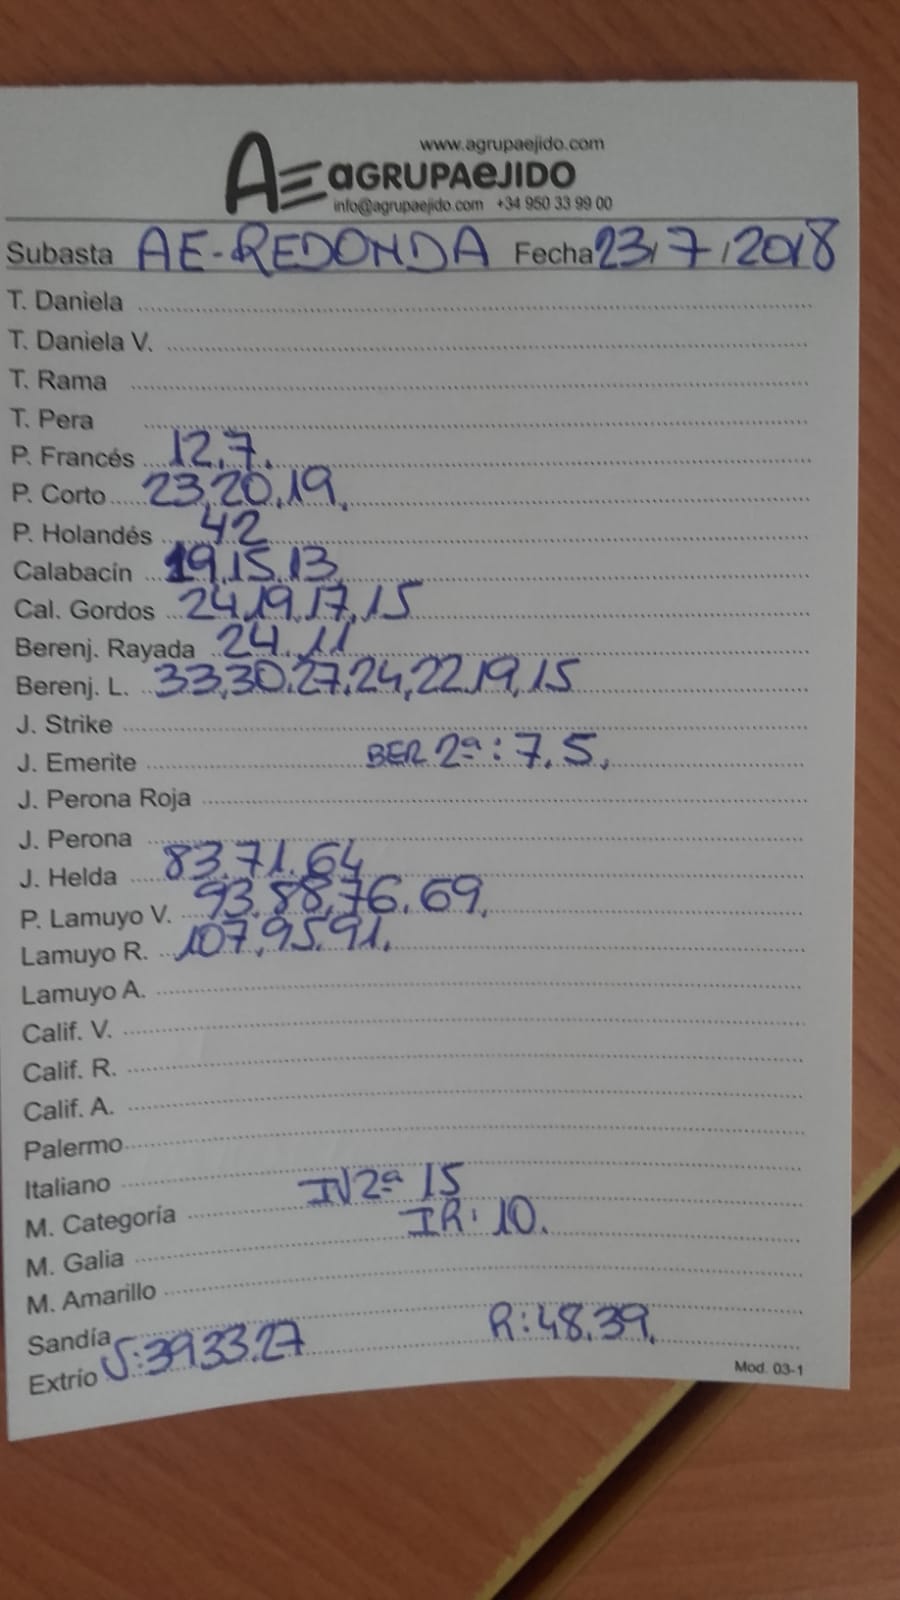 www.agrupaejido.com
AE AGRUPAEJIDO
info@agrupaejido.com +34 950 33 99 00
Subasta AE-REDONDA Fecha 23/7/2018
T. Daniela
T. Daniela V.
T. Rama
T. Pera
P. Francés 12.7.
P. Corto 23,20.19.
P. Holandés 42
Calabacín 19.15.13
Cal. Gordos 24.19.17.15
Berenj. Rayada 24.11
Berenj. L. 33,30.27.24,22.19,15
J. Strike
J. Emerite BER 2ª: 7.5.
J. Perona Roja
J. Perona
J. Helda 83.71.64
P. Lamuyo V. 93.88,76.69.
Lamuyo R. 107,95.91.
Lamuyo A.
Calif. V.
Calif. R.
Calif. A.
Palermo
Italiano
M. Categoría IV2ª 15
M. Galia IR: 10.
M. Amarillo
Sandía
Extrío V:39.33.27 R:48.39.
Mod. 03-1